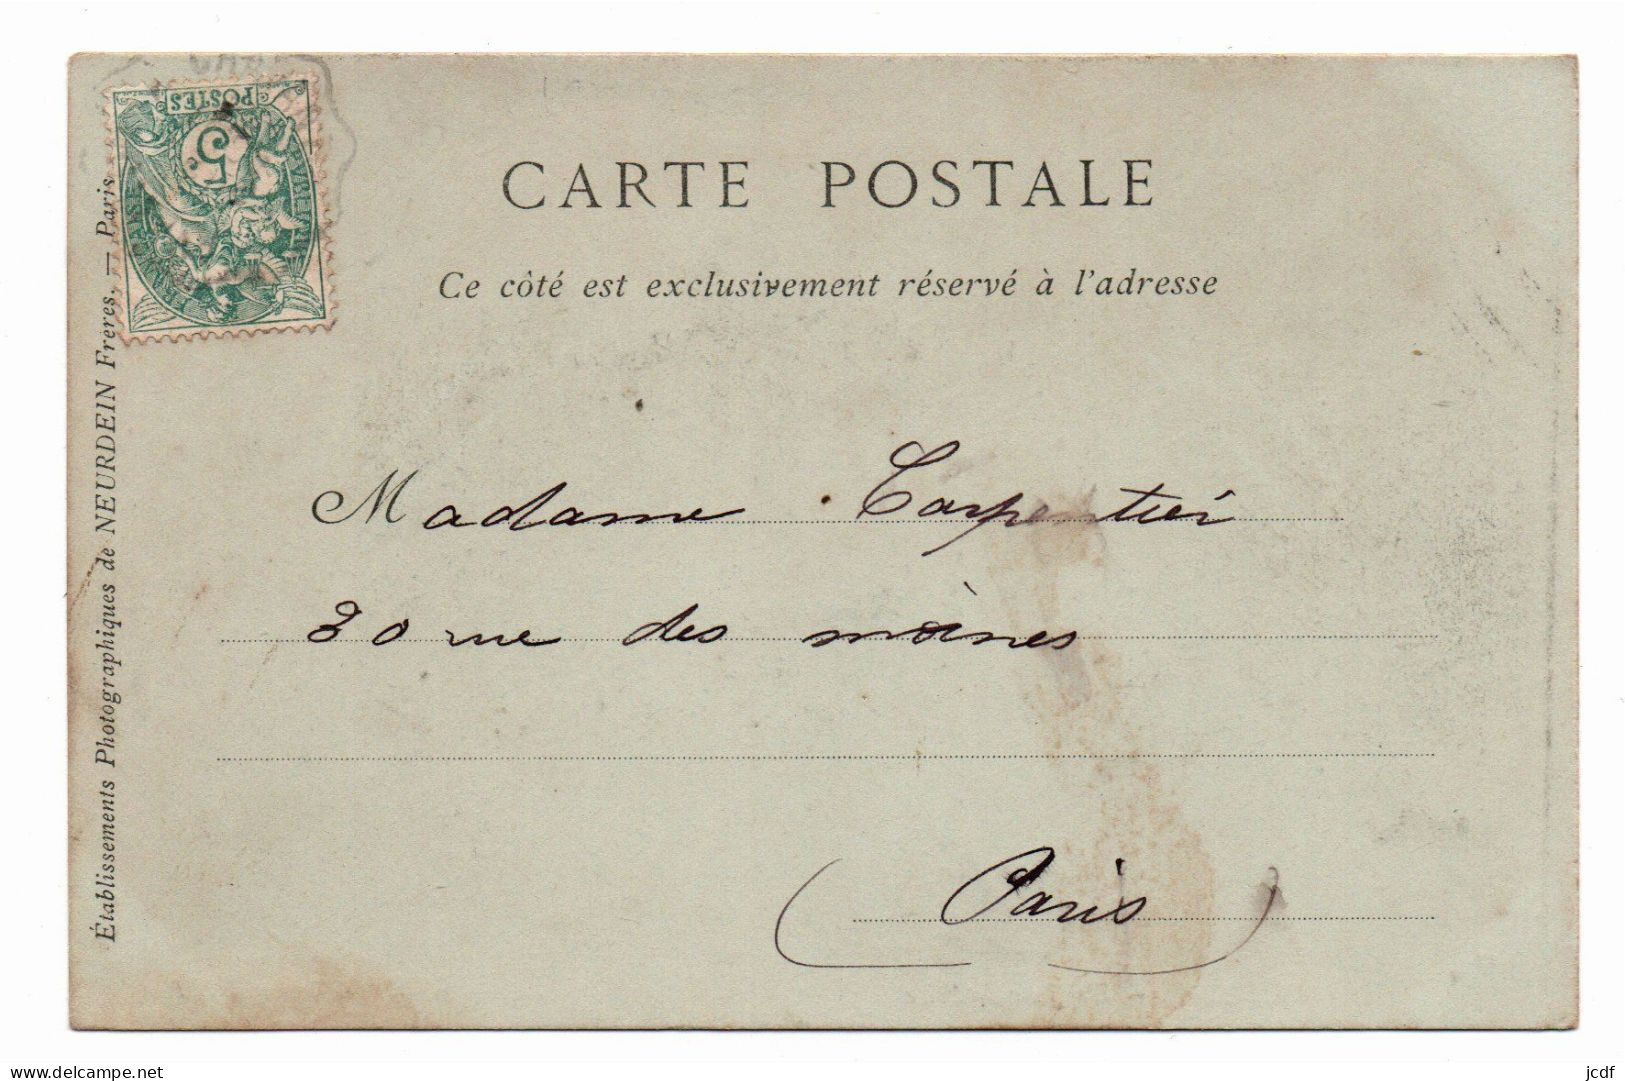 CARTE POSTALE
Ce côté est exclusivement réservé à l'adresse
POSTES
5 c
Établissements Photographiques de NEURDEIN Frères. — Paris
Madame Carpentier
30 rue des moines
Paris
www.delcampe.net
jcdf